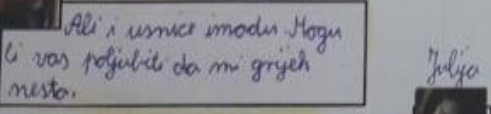 Ali i usnice imadu Mogu
li vas poljubiti da mi grijeh
nesta.
Julija